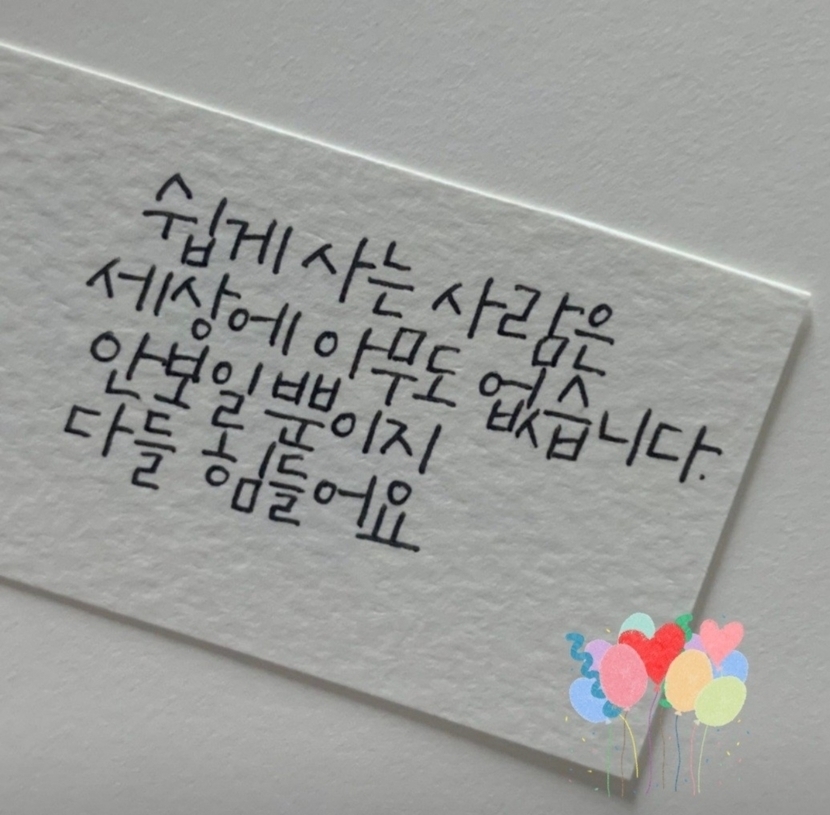 쉽게 사는 사람은
세상에 아무도 없습니다.
안보일 뿐이지
다들 힘들어요